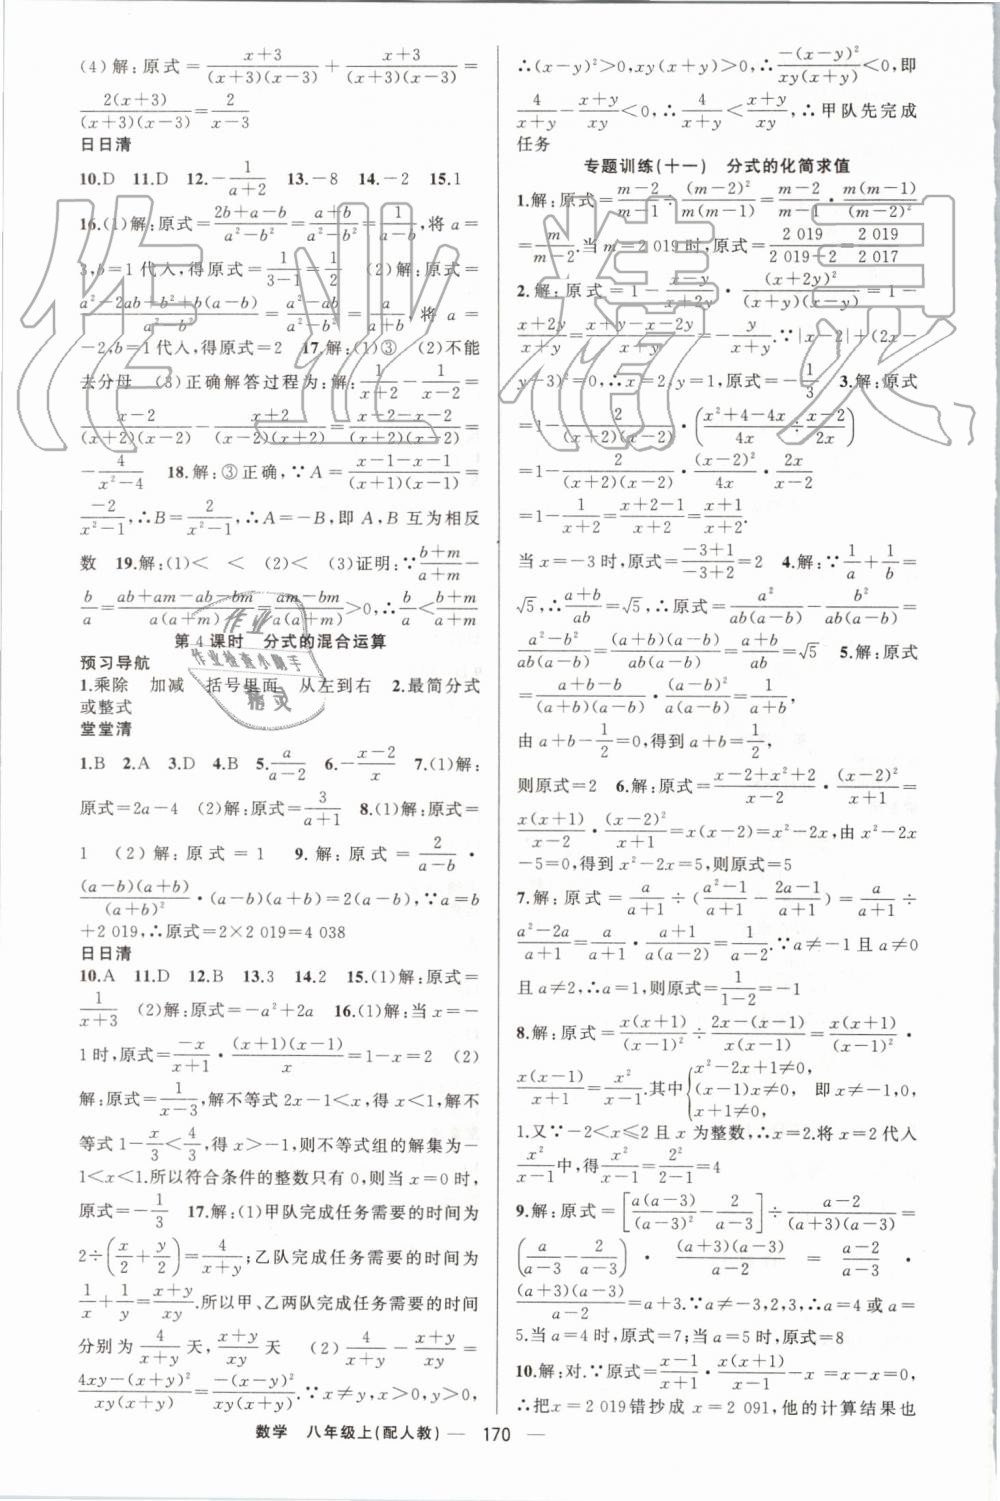 (4)解:原式=\frac{x+3}{(x+3)(x-3)}+\frac{x+3}{(x+3)(x-3)}=
\frac{2(x+3)}{(x+3)(x-3)}=\frac{2}{x-3}
日日清
10.D 11.D 12.-\frac{1}{a+2} 13.-8 14.-2 15.1
16.(1)解:原式=\frac{2b+a-b}{a²-b²}=\frac{a+b}{a²-b²}=\frac{1}{a-b},将 a=
3,b=1代入,得原式=\frac{1}{3-1}=\frac{1}{2} (2)解:原式=
\frac{a²-2ab+b²+b(a-b)}{a²-b²}=\frac{a²-ab}{a²-b²}=\frac{a}{a+b},将 a=
-2,b=1代入,得原式=2 17.解:(1)③ (2)不能
去分母 (3)正确解答过程为:解:\frac{1}{x+2}-\frac{1}{x-2}=
\frac{x-2}{(x+2)(x-2)}-\frac{x+2}{(x+2)(x-2)}=\frac{x-2-x-2}{(x+2)(x-2)}=
-\frac{4}{x²-4} 18.解:③正确,∵A=\frac{x-1-x-1}{(x+1)(x-1)}=
\frac{-2}{x²-1},∴B=\frac{2}{x²-1},∴A=-B,即 A,B 互为相反
数 19.解:(1)< < (2)< (3)证明:∵\frac{b+m}{a+m}-
\frac{b}{a}=\frac{ab+am-ab-bm}{a(a+m)}=\frac{am-bm}{a(a+m)}>0,∴\frac{b}{a}<\frac{b+m}{a+m}
第4课时 分式的混合运算
预习导航
1.乘除 加减 括号里面 从左到右 2.最简分式
或整式
堂堂清
1.B 2.A 3.D 4.B 5.\frac{a}{a-2} 6.-\frac{x-2}{x} 7.(1)解:
原式=2a-4 (2)解:原式=\frac{3}{a+1} 8.(1)解:原式=
1 (2)解:原式=1 9.解:原式=\frac{2}{a-b}·
\frac{(a-b)(a+b)}{(a+b)²}·(a-b)(a+b)=2(a-b),∵a=b
+2 019,∴原式=2×2 019=4 038
日日清
10.A 11.D 12.B 13.3 14.2 15.(1)解:原式=
\frac{1}{x+3} (2)解:原式=-a²+2a 16.(1)解:当x=-
1时,原式=\frac{-x}{x+1}·\frac{(x+1)(x-1)}{x}=1-x=2 (2)
解:原式=\frac{1}{x-3},解不等式2x-1<x,得x<1,解不
等式1-\frac{x}{3}<\frac{4}{3},得x>-1,则不等式组的解集为-
1<x<1.所以符合条件的整数只有0,则当x=0时,
原式=-\frac{1}{3} 17.解:(1)甲队完成任务需要的时间为
2÷(\frac{x}{2}+\frac{y}{2})=\frac{4}{x+y};乙队完成任务需要的时间为
\frac{1}{x}+\frac{1}{y}=\frac{x+y}{xy}.所以甲、乙两队完成任务需要的时间
分别为\frac{4}{x+y}天,\frac{x+y}{xy}天 (2)\frac{4}{x+y}-\frac{x+y}{xy}=
\frac{4xy-(x+y)²}{xy(x+y)}=\frac{-(x-y)²}{xy(x+y)}.∵x≠y,x>0,y>0,
∴(x-y)²>0,xy(x+y)>0,∴\frac{-(x-y)²}{xy(x+y)}<0,即
\frac{4}{x+y}-\frac{x+y}{xy}<0,∴\frac{4}{x+y}<\frac{x+y}{xy},∴甲队先完成
任务
专题训练(十一) 分式的化简求值
1.解:原式=\frac{m-2}{m-1}÷\frac{(m-2)²}{m(m-1)}=\frac{m-2}{m-1}·\frac{m(m-1)}{(m-2)²}
=\frac{m}{m-2}.当m=2 019时,原式=\frac{2 019}{2 019-2}=\frac{2 019}{2 017}
2.解:原式=1-\frac{x-y}{x+2y}·\frac{(x+2y)²}{(x+y)(x-y)}=1-
\frac{x+2y}{x+y}=\frac{x+y-x-2y}{x+y}=-\frac{y}{x+y}.∵|x-2|+(2x-
y-3)²=0,∴x=2,y=1,原式=-\frac{1}{3} 3.解:原式
=1-\frac{2}{(x+2)(x-2)}·(\frac{x²+4-4x}{4x}÷\frac{x-2}{2x})
=1-\frac{2}{(x+2)(x-2)}·\frac{(x-2)²}{4x}·\frac{2x}{x-2}
=1-\frac{1}{x+2}=\frac{x+2-1}{x+2}=\frac{x+1}{x+2}.
当x=-3时,原式=\frac{-3+1}{-3+2}=2 4.解:∵\frac{1}{a}+\frac{1}{b}=
√5,∴\frac{a+b}{ab}=√5,∴原式=\frac{a²}{ab(a-b)}-\frac{b²}{ab(a-b)}=
\frac{a²-b²}{ab(a-b)}=\frac{(a+b)(a-b)}{ab(a-b)}=\frac{a+b}{ab}=√5 5.解:原式
=\frac{a+b-b}{(a+b)(a-b)}·\frac{a-b}{a}=\frac{a(a-b)}{a(a-b)(a+b)}=\frac{1}{a+b},
由a+b-\frac{1}{2}=0,得到a+b=\frac{1}{2},
则原式=2 6.解:原式=\frac{x-2+x²+2}{x-2}·\frac{(x-2)²}{x+1}=
\frac{x(x+1)}{x-2}·\frac{(x-2)²}{x+1}=x(x-2)=x²-2x,由x²-2x
-5=0,得到x²-2x=5,则原式=5
7.解:原式=\frac{a}{a+1}÷(\frac{a²-1}{a+1}-\frac{2a-1}{a+1})=\frac{a}{a+1}÷
\frac{a²-2a}{a+1}=\frac{a}{a+1}·\frac{a+1}{a(a-2)}=\frac{1}{a-2}.∵a≠-1且a≠0
且a≠2,∴a=1,则原式=\frac{1}{1-2}=-1
8.解:原式=\frac{x(x+1)}{(x-1)²}÷\frac{2x-(x-1)}{x(x-1)}=\frac{x(x+1)}{(x-1)²}·
\frac{x(x-1)}{x+1}=\frac{x²}{x-1}.其中{x²-2x+1≠0, (x-1)x≠0, x+1≠0, 即x≠-1,0,
1.又∵-2<x≤2且x为整数,∴x=2.将x=2代入
\frac{x²}{x-1}中,得\frac{x²}{x-1}=\frac{2²}{2-1}=4
9.解:原式=[\frac{a(a-3)}{(a-3)²}-\frac{2}{a-3}]÷\frac{a-2}{(a+3)(a-3)}=
(\frac{a}{a-3}-\frac{2}{a-3})·\frac{(a+3)(a-3)}{a-2}=\frac{a-2}{a-3}·
\frac{(a+3)(a-3)}{a-2}=a+3.∵a≠-3,2,3,∴a=4或a=
5.当a=4时,原式=7;当a=5时,原式=8
10.解:对.∵原式=\frac{x-1}{x+1}·\frac{x(x+1)}{x-1}-x=x-x=0,
∴把x=2 019错抄成x=2 091,他的计算结果也
数学 八年级上(配人教) — 170 —
作业精灵
作业
作业检查小助手
精灵